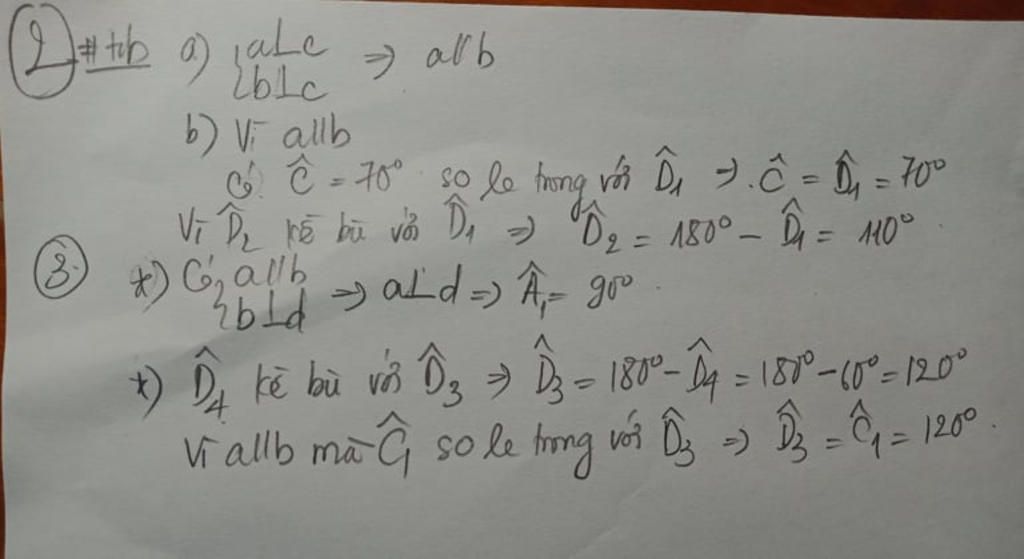 2 #tb a) {a⊥c ⇒ a//b
{b⊥c
b) Vì a//b
Có Ĉ = 70° so le trong với D̂1 ⇒ Ĉ = D̂1 = 70°
Vì D̂2 kề bù với D̂1 ⇒ D̂2 = 180° - D̂1 = 110°
3. *) Có {a//b
{b⊥d ⇒ a⊥d ⇒ Â1 = 90°
*) D̂4 kề bù với D̂3 ⇒ D̂3 = 180° - D̂4 = 180° - 60° = 120°
Vì a//b mà Ĉ1 so le trong với D̂3 ⇒ D̂3 = Ĉ1 = 120°.